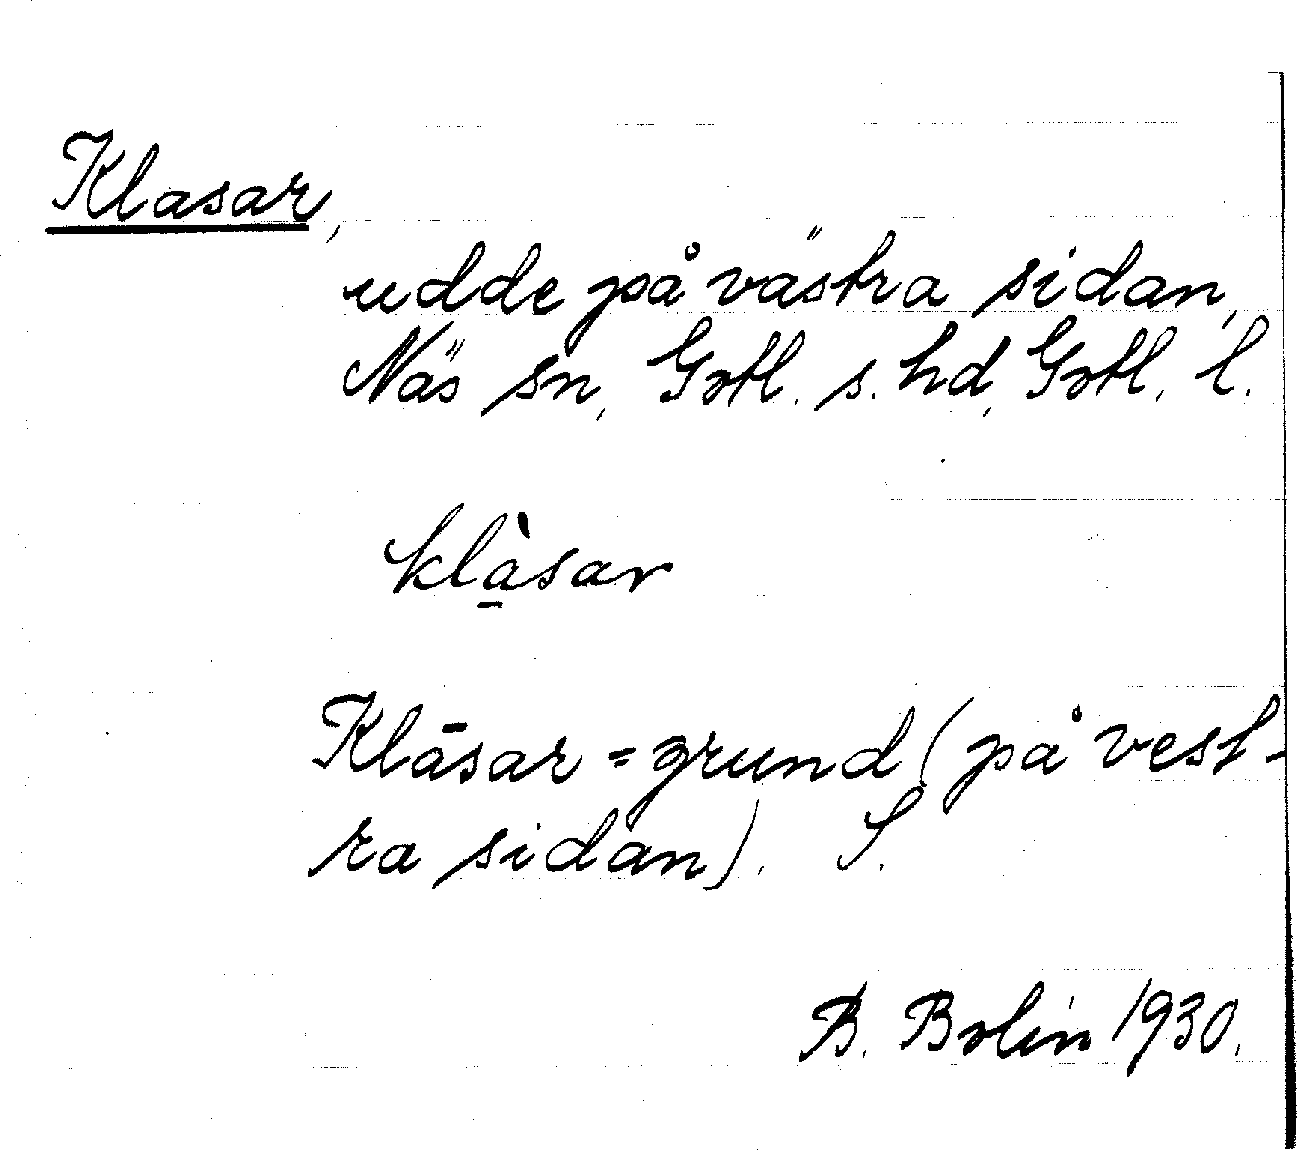 Klasar,
udde på västra sidan,
Näs sn, Gotl. s. hd, Gotl. l.
klạ̀sar
Klāsar=grund (på vest-
ra sidan). S.
B. Bolin 1930.